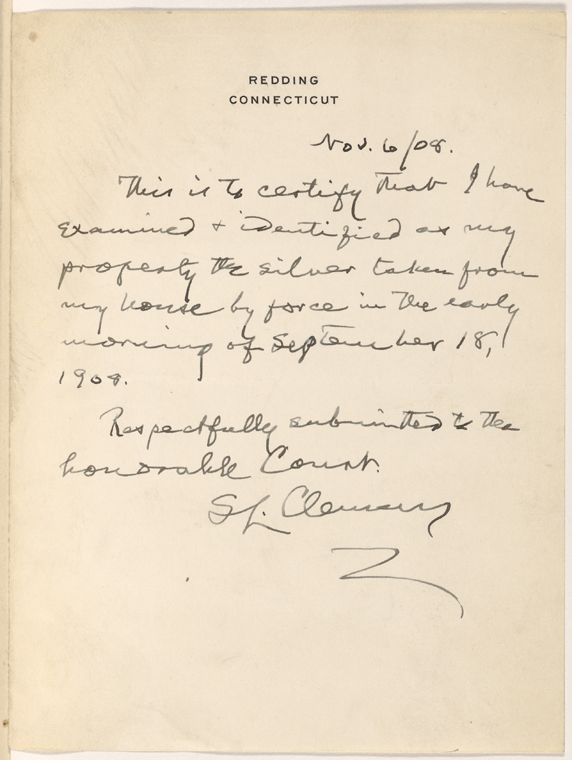 REDDING
CONNECTICUT
Nov. 6/08.
This is to certify that I have
examined & identified as my
property the silver taken from
my house by force in the early
morning of September 18,
1908.
Respectfully submitted to the
honorable Court.
SL. Clemens